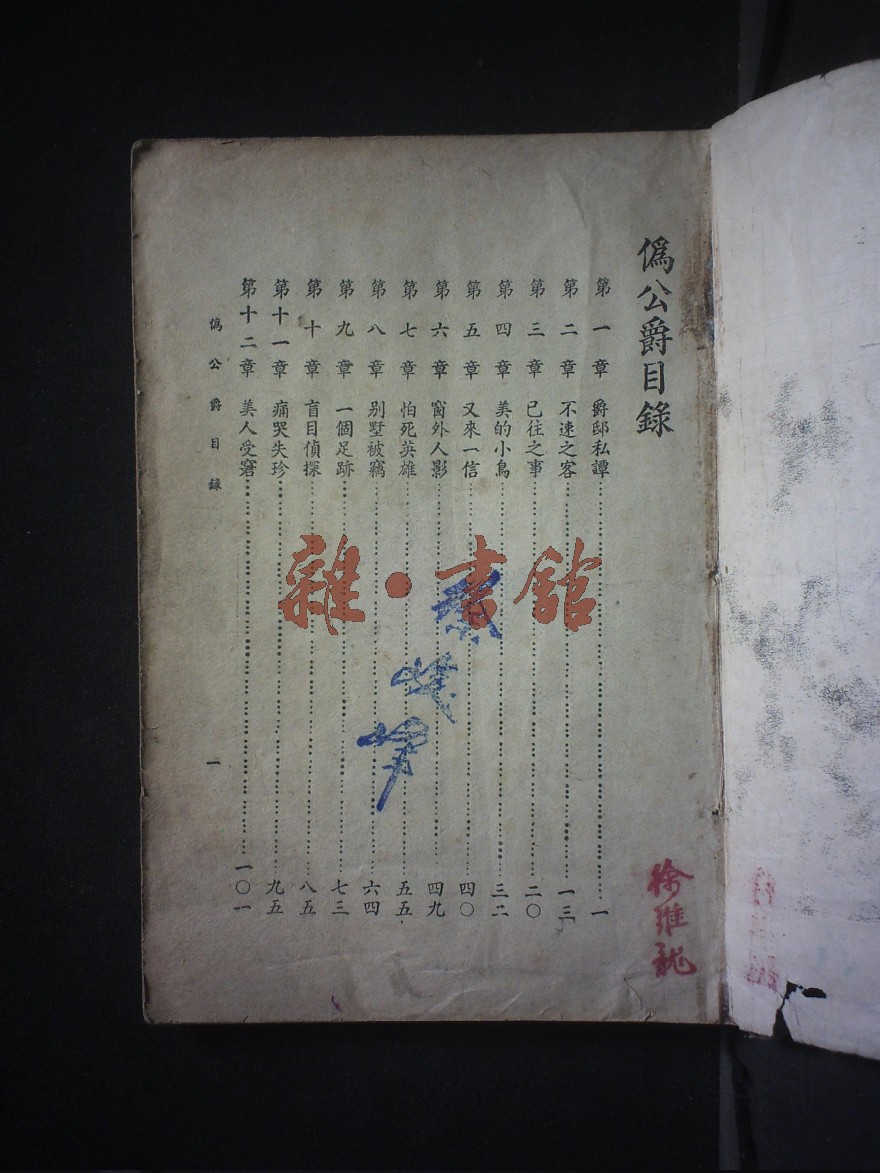 僞公爵目錄
第一章 爵邸私譚……一
第二章 不速之客……一三
第三章 已往之事……二〇
第四章 美的小鳥……三二
第五章 又來一信……四〇
第六章 窗外人影……四九
第七章 怕死英雄……五五
第八章 別墅被竊……六四
第九章 一個足跡……七三
第十章 盲目偵探……八五
第十一章 痛哭失珍……九五
第十二章 美人受窘……一〇一
僞公爵目錄
一
雜·書館
徐維